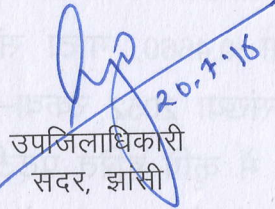 20.7.16
उपजिलाधिकारी
सदर, झांसी